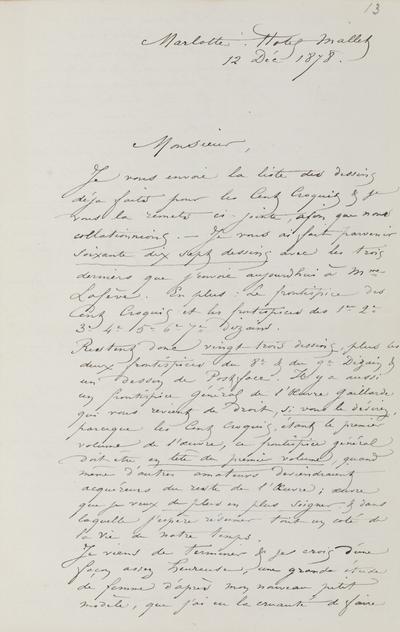 13
Marlotte. Hotel Mallet
12 Déc 1878.
Monsieur,
Je vous envoie la liste des dessins
déjà faits pour les Cent Croquis & je
vous la remets ci-jointe, afin que nous
collationnions. — Je vous ai fait parvenir
soixante dix sept dessins avec les trois
derniers que j'envoie aujourd'hui à Mme
Lefève. En plus : Le frontispice des
Cent Croquis et les frontispices des 1er 2e
3e 4e 5e 6e 7e dizains.
Restent donc vingt trois dessins, plus les
deux frontispices du 8e & du 9e Dizain &
un dessin de Postface. Il y a aussi
un frontispice général de l'Œuvre Gaillarde
qui vous revient de Droit, si vous le desirez,
parceque les Cent Croquis, étant le premier
volume de l'œuvre, ce frontispice général
doit être en tête du premier volume, quand
même d'autres amateurs deviendraient
acquéreurs du reste de l'Œuvre ; œuvre
que je veux de plus en plus soigner & dans
laquelle j'espère résumer tout un coté de
la vie de notre temps.
Je viens de terminer & je crois d'une
façon assez heureuse, une grande étude
de femme d'après mon nouveau petit
modèle, que j'ai eu la cruauté de faire